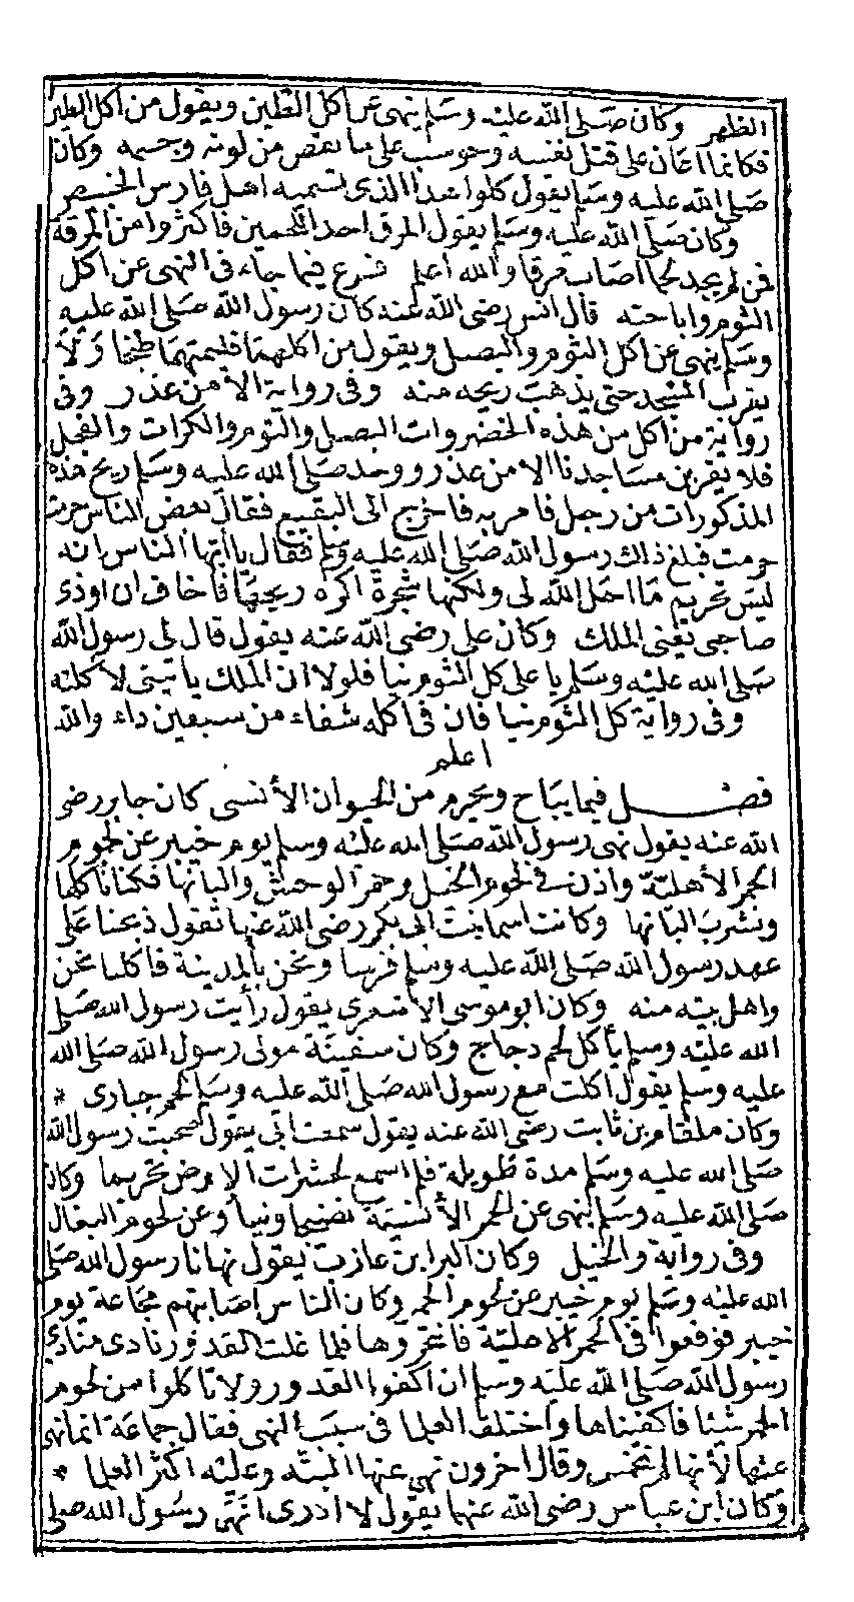 الظهر وكان صلى الله عليه وسلم ينهى عن اكل الطين ويقول من اكل الطين
فكانما اعان على قتل نفسه وحوسب على ما نقص من لونه وجسمه وكان
صلى الله عليه وسلم يقول كلوا هذا الذى تسميه اهل فارس الخبيص
وكان صلى الله عليه وسلم يقول المرق احد اللحمين فاكثروا من المرقة
فمن لم يجد لحما اصاب مرقا والله اعلم فرع فيما جاء فى النهى عن اكل
الثوم واباحته قال انس رضى الله عنه كان رسول الله صلى الله عليه
وسلم ينهى عن اكل الثوم والبصل ويقول من اكلهما فليمتهما طبخا ولا
يقرب المسجد حتى يذهب ريحه منه وفى رواية الا من عذر وفى
رواية من اكل من هذه الخضروات البصل والثوم والكراث والفجل
فلا يقربن مساجدنا الا من عذر ووجد صلى الله عليه وسلم ريح هذه
المذكورات من رجل فامر به فاخرج الى البقيع فقال بعض الناس حرمت
حرمت فبلغ ذلك رسول الله صلى الله عليه وسلم فقال يا ايها الناس انه
ليس تحريم ما احل الله لى ولكنها شجرة اكره ريحها فاخاف ان اوذى
صاحبى يعنى الملك وكان على رضى الله عنه يقول قال لى رسول الله
صلى الله عليه وسلم يا على كل الثوم نيا فلولا ان الملك ياتينى لاكلته
وفى رواية كل الثوم نيا فان فى اكله شفاء من سبعين داء والله
اعلم
فصل فيما يباح ويحرم من الحيوان الأنسى كان جابر رضى
الله عنه يقول نهى رسول الله صلى الله عليه وسلم يوم خيبر عن لحوم
الحمر الأهلية واذن فى لحوم الخيل وحمر الوحش والبانها فكنا نأكلها
ونشرب البانها وكانت اسما بنت ابى بكر رضى الله عنها تقول ذبحنا على
عهد رسول الله صلى الله عليه وسلم فرسا ونحن بالمدينة فاكلنا نحن
واهل بيته منه وكان ابو موسى الأشعرى يقول رأيت رسول الله صلى
الله عليه وسلم يأكل لحم دجاج وكان سفينة مولى رسول الله صلى الله
عليه وسلم يقول اكلت مع رسول الله صلى الله عليه وسلم لحم حبارى *
وكان ملقام بن ثابت رضى الله عنه يقول سمعت ابى يقول صحبت رسول الله
صلى الله عليه وسلم مدة طويلة فلم اسمع لحشرات الارض تحريما وكان
صلى الله عليه وسلم ينهى عن الحمر الأنسية نضيجا ونيأ وعن لحوم البغال
وفى رواية والخيل وكان البرا بن عازب يقول نهانا رسول الله صلى
الله عليه وسلم يوم خيبر عن لحوم الحمر وكان الناس اصابتهم مجاعة يوم
خيبر فوقعوا فى الحمر الاهلية فانتحروها فلما غلت القدور نادى منادى
رسول الله صلى الله عليه وسلم ان اكفوا القدور ولا تاكلوا من لحوم
الحمر شيئا فاكفيناها واختلف العلما فى سبب النهى فقال جماعة انما نهى
عنها لأنها لم تخمس وقال اخرون نهى عنها البتة وعليه اكثر العلما *
وكان ابن عباس رضى الله عنهما يقول لا ادرى انهى رسول الله صلى